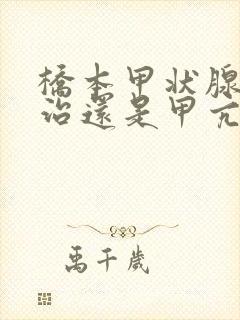 橋本甲状腺
治還是甲亢
禹千歲